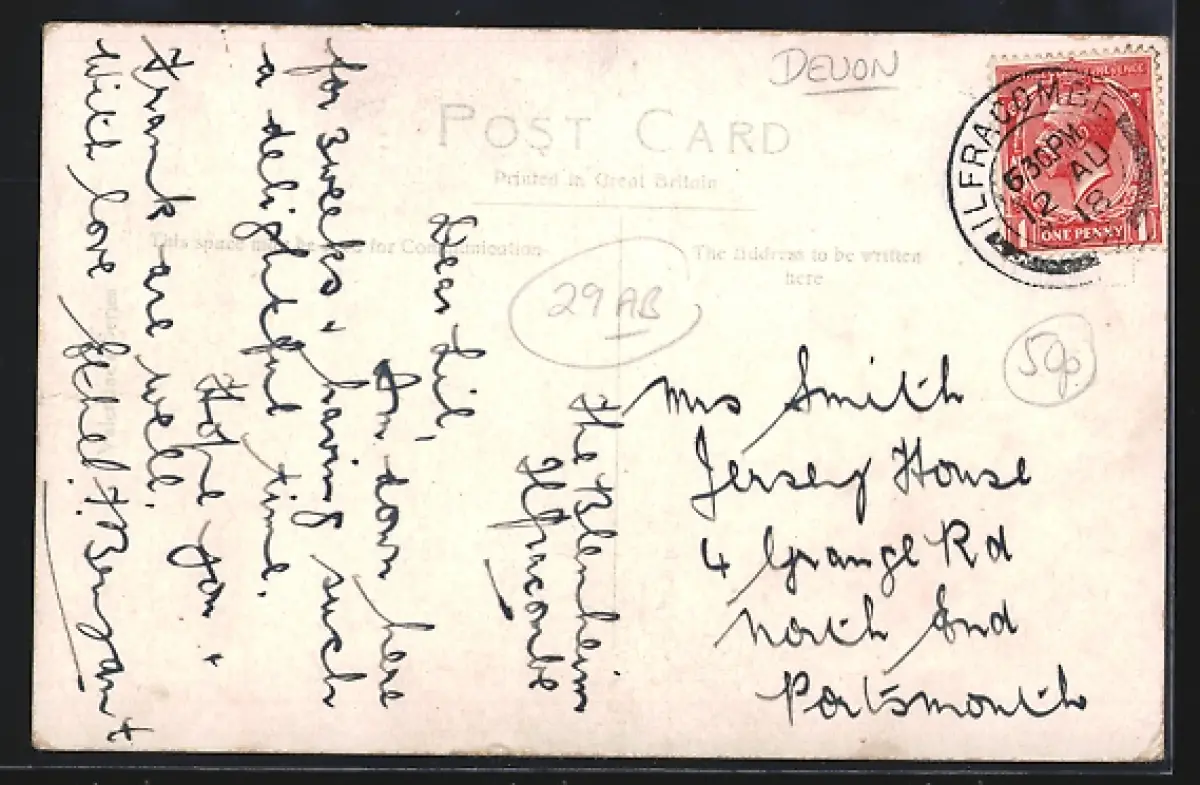 DEVON
POST CARD
Printed in Great Britain
This space may be used for Communication
The Address to be written
here
ILFRACOMBE
630PM
12 AU
18
ONE PENNY
29 AB
50p
Mrs Smith
Jersey House
4 Grange Rd
North End
Portsmouth
The Blenheim
Ilfracombe
Dear Lil,
Am down here
for 3 weeks & having such
a delightful time.
Hope you &
Frank are well.
With love Ethel